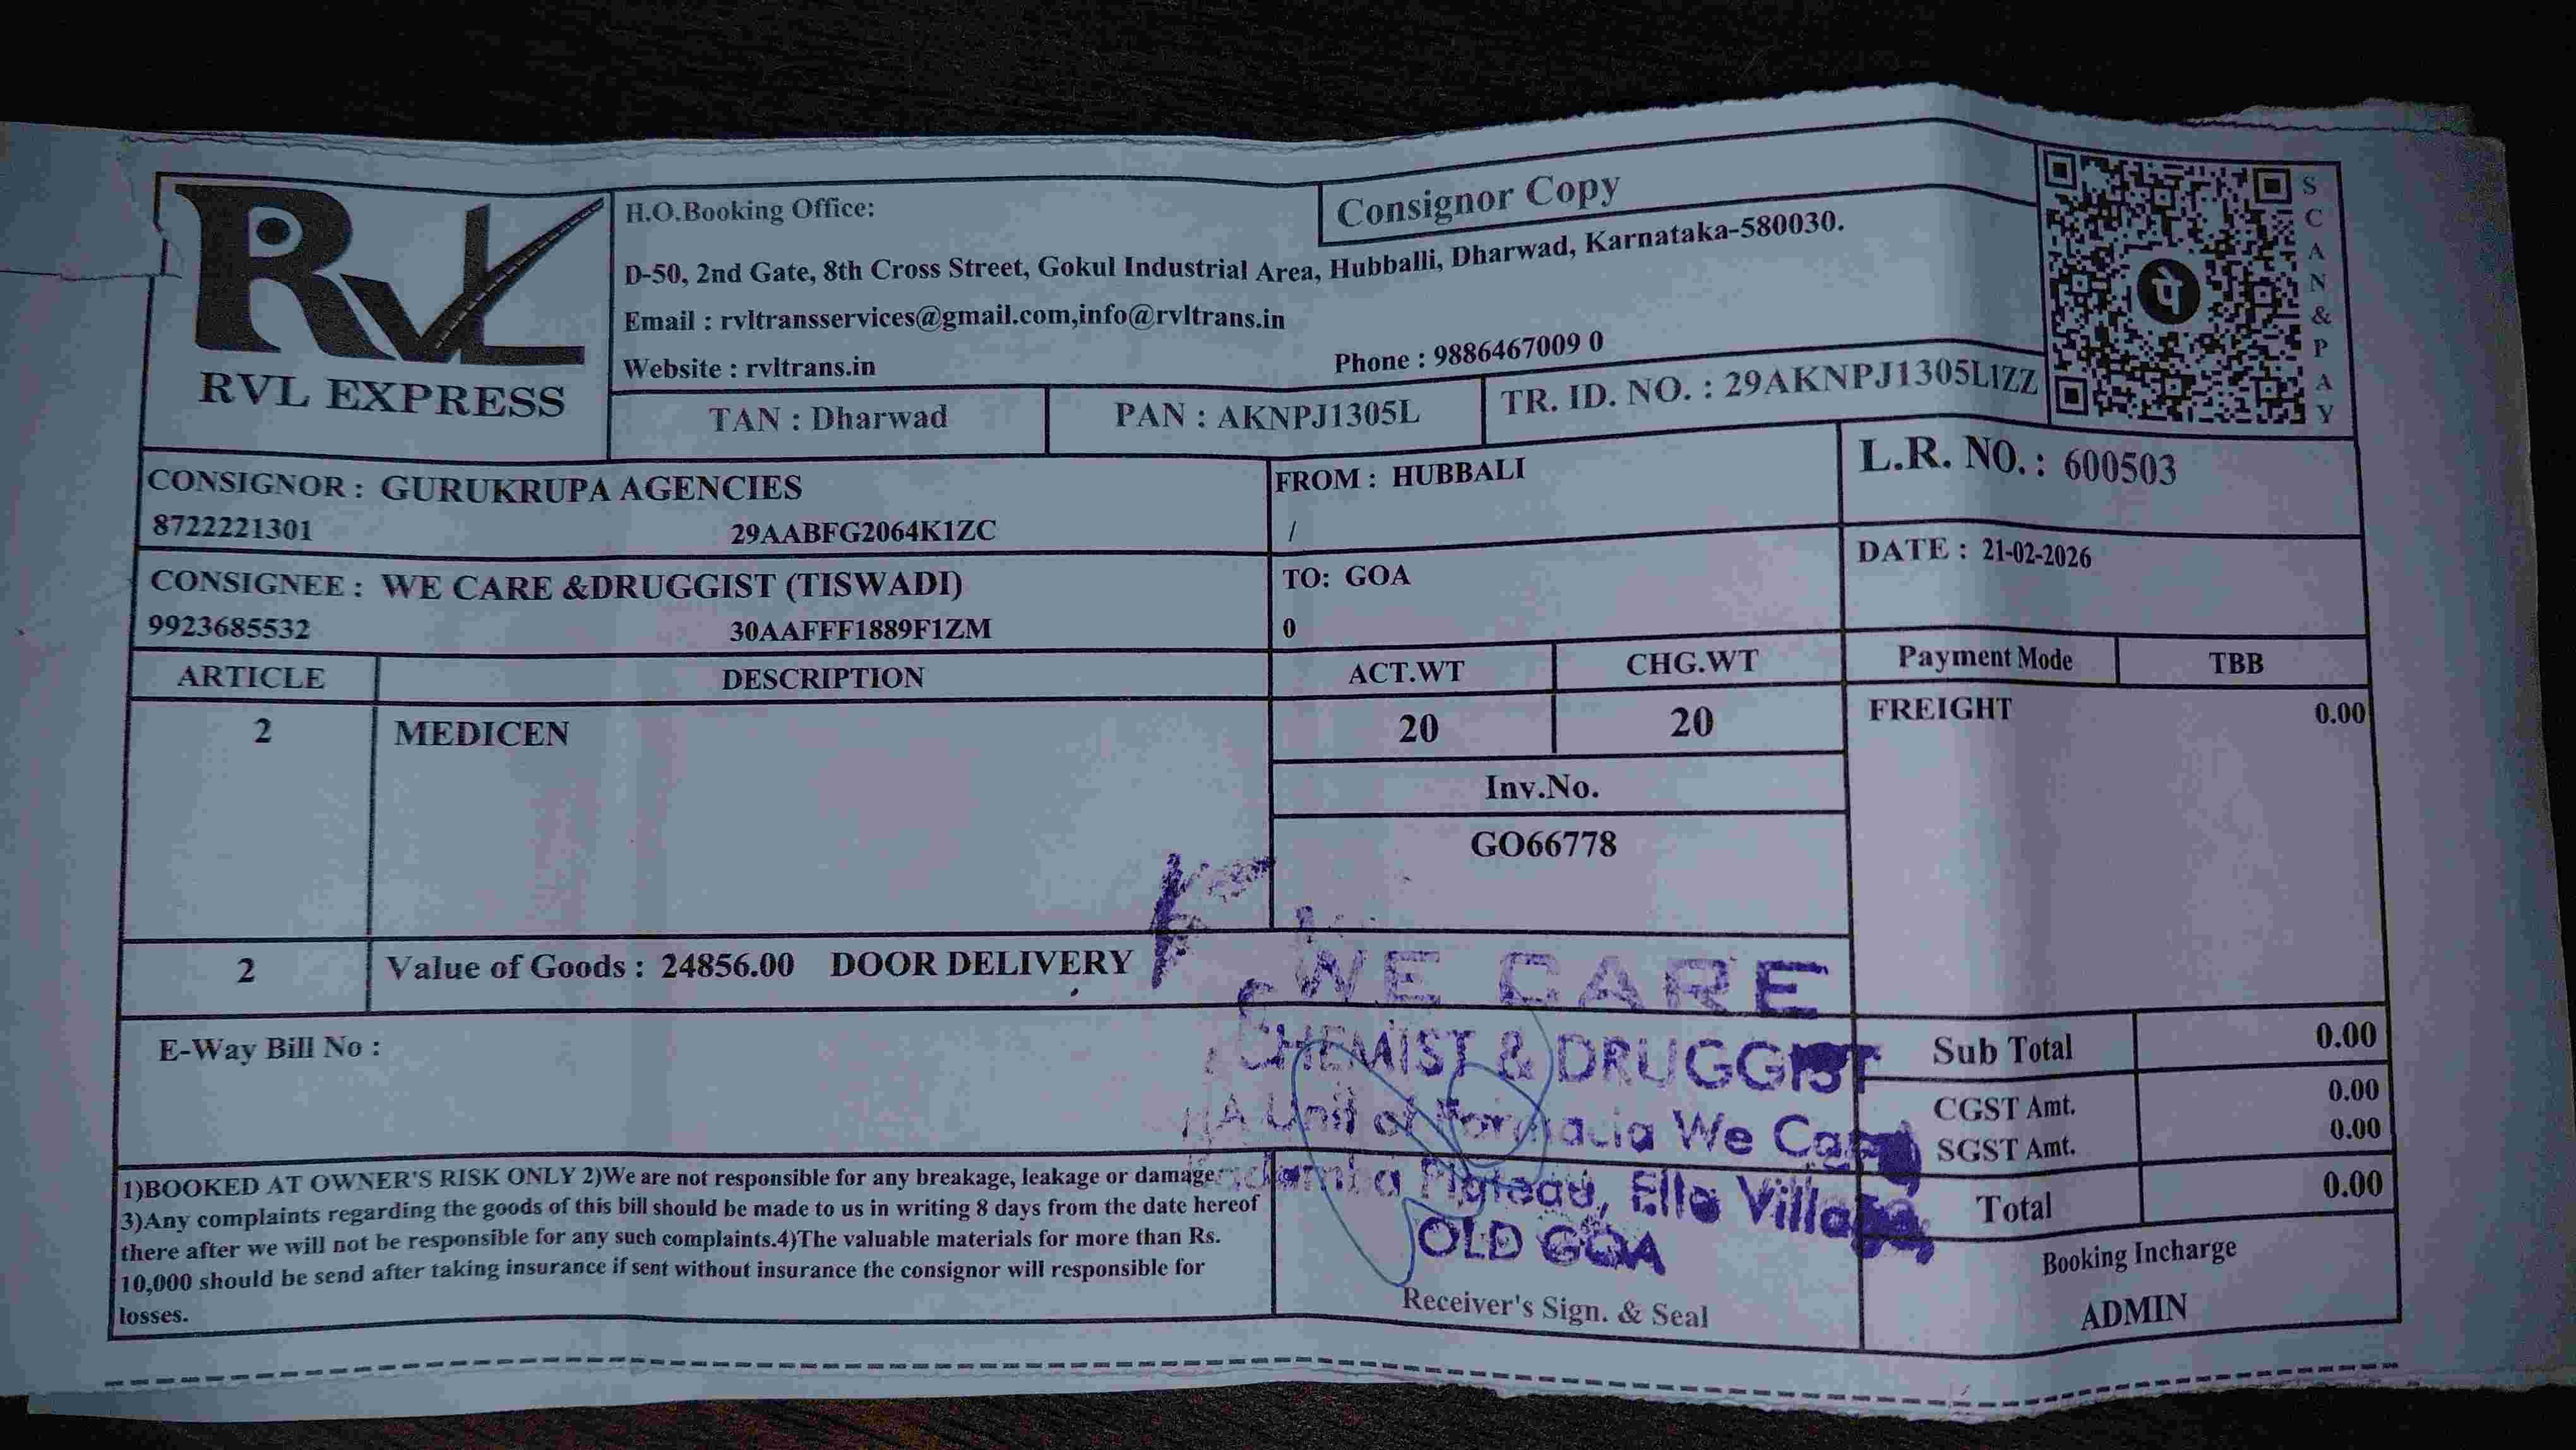 RVL
RVL EXPRESS
H.O.Booking Office:
Consignor Copy
D-50, 2nd Gate, 8th Cross Street, Gokul Industrial Area, Hubballi, Dharwad, Karnataka-580030.
Email : rvltransservices@gmail.com,info@rvltrans.in
Website : rvltrans.in
Phone : 9886467009 0
TAN : Dharwad
PAN : AKNPJ1305L
TR. ID. NO. : 29AKNPJ1305L1ZZ
पे
SCAN&PAY
CONSIGNOR : GURUKRUPA AGENCIES
8722221301 29AABFG2064K1ZC
FROM : HUBBALI
/
L.R. NO. : 600503
CONSIGNEE : WE CARE &DRUGGIST (TISWADI)
9923685532 30AAFFF1889F1ZM
TO: GOA
0
DATE : 21-02-2026
ARTICLE DESCRIPTION ACT.WT CHG.WT Payment Mode TBB
2 MEDICEN 20 20 FREIGHT 0.00
Inv.No.
GO66778
2 Value of Goods : 24856.00 DOOR DELIVERY
E-Way Bill No :
WE CARE
CHEMIST & DRUGGIST
A Unit of We Care
Plateau, Ella Village,
OLD GOA
Receiver's Sign. & Seal
Sub Total 0.00
CGST Amt. 0.00
SGST Amt. 0.00
Total 0.00
Booking Incharge
ADMIN
1)BOOKED AT OWNER'S RISK ONLY 2)We are not responsible for any breakage, leakage or damage
3)Any complaints regarding the goods of this bill should be made to us in writing 8 days from the date hereof
there after we will not be responsible for any such complaints.4)The valuable materials for more than Rs.
10,000 should be send after taking insurance if sent without insurance the consignor will responsible for
losses.